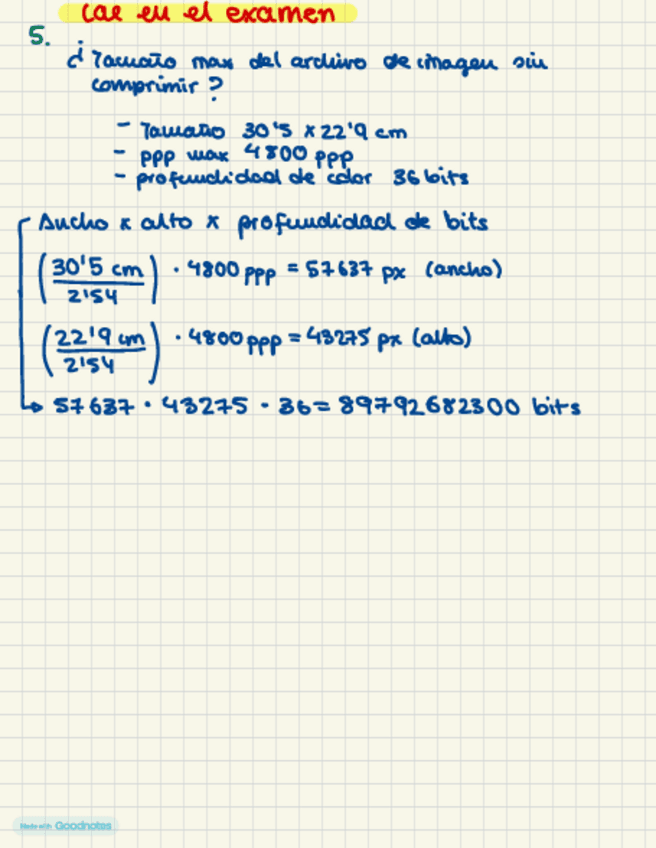 cae en el examen
5.
¿Tamaño max del archivo de imagen sin
comprimir?
- Tamaño 30'5 x 22'9 cm
- ppp max 4800 ppp
- profundidad de color 36 bits
Ancho x alto x profundidad de bits
(30'5 cm / 2'54) · 4800 ppp = 57637 px (ancho)
(22'9 cm / 2'54) · 4800 ppp = 43275 px (alto)
→ 57637 · 43275 · 36 = 89792682300 bits
Made with Goodnotes